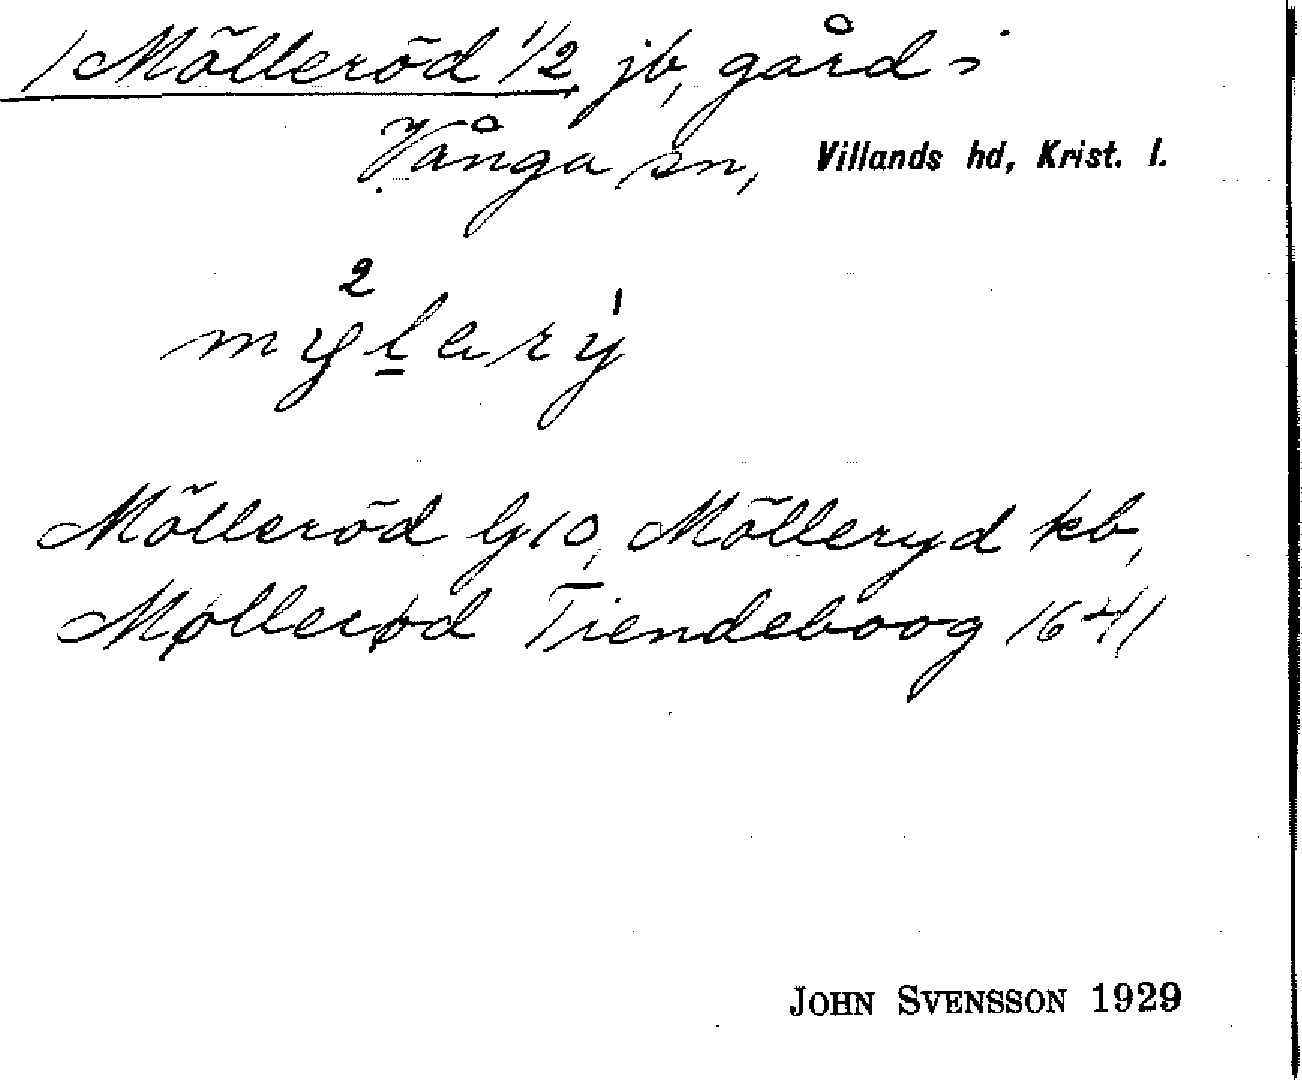 /Mölleröd 1/2 jb, gård i
Vånga sn, Villands hd, Krist. l.
Mölleröd G10, Mölleryd kb,
Møllerød Tiendeboog 1641
JOHN SVENSSON 1929